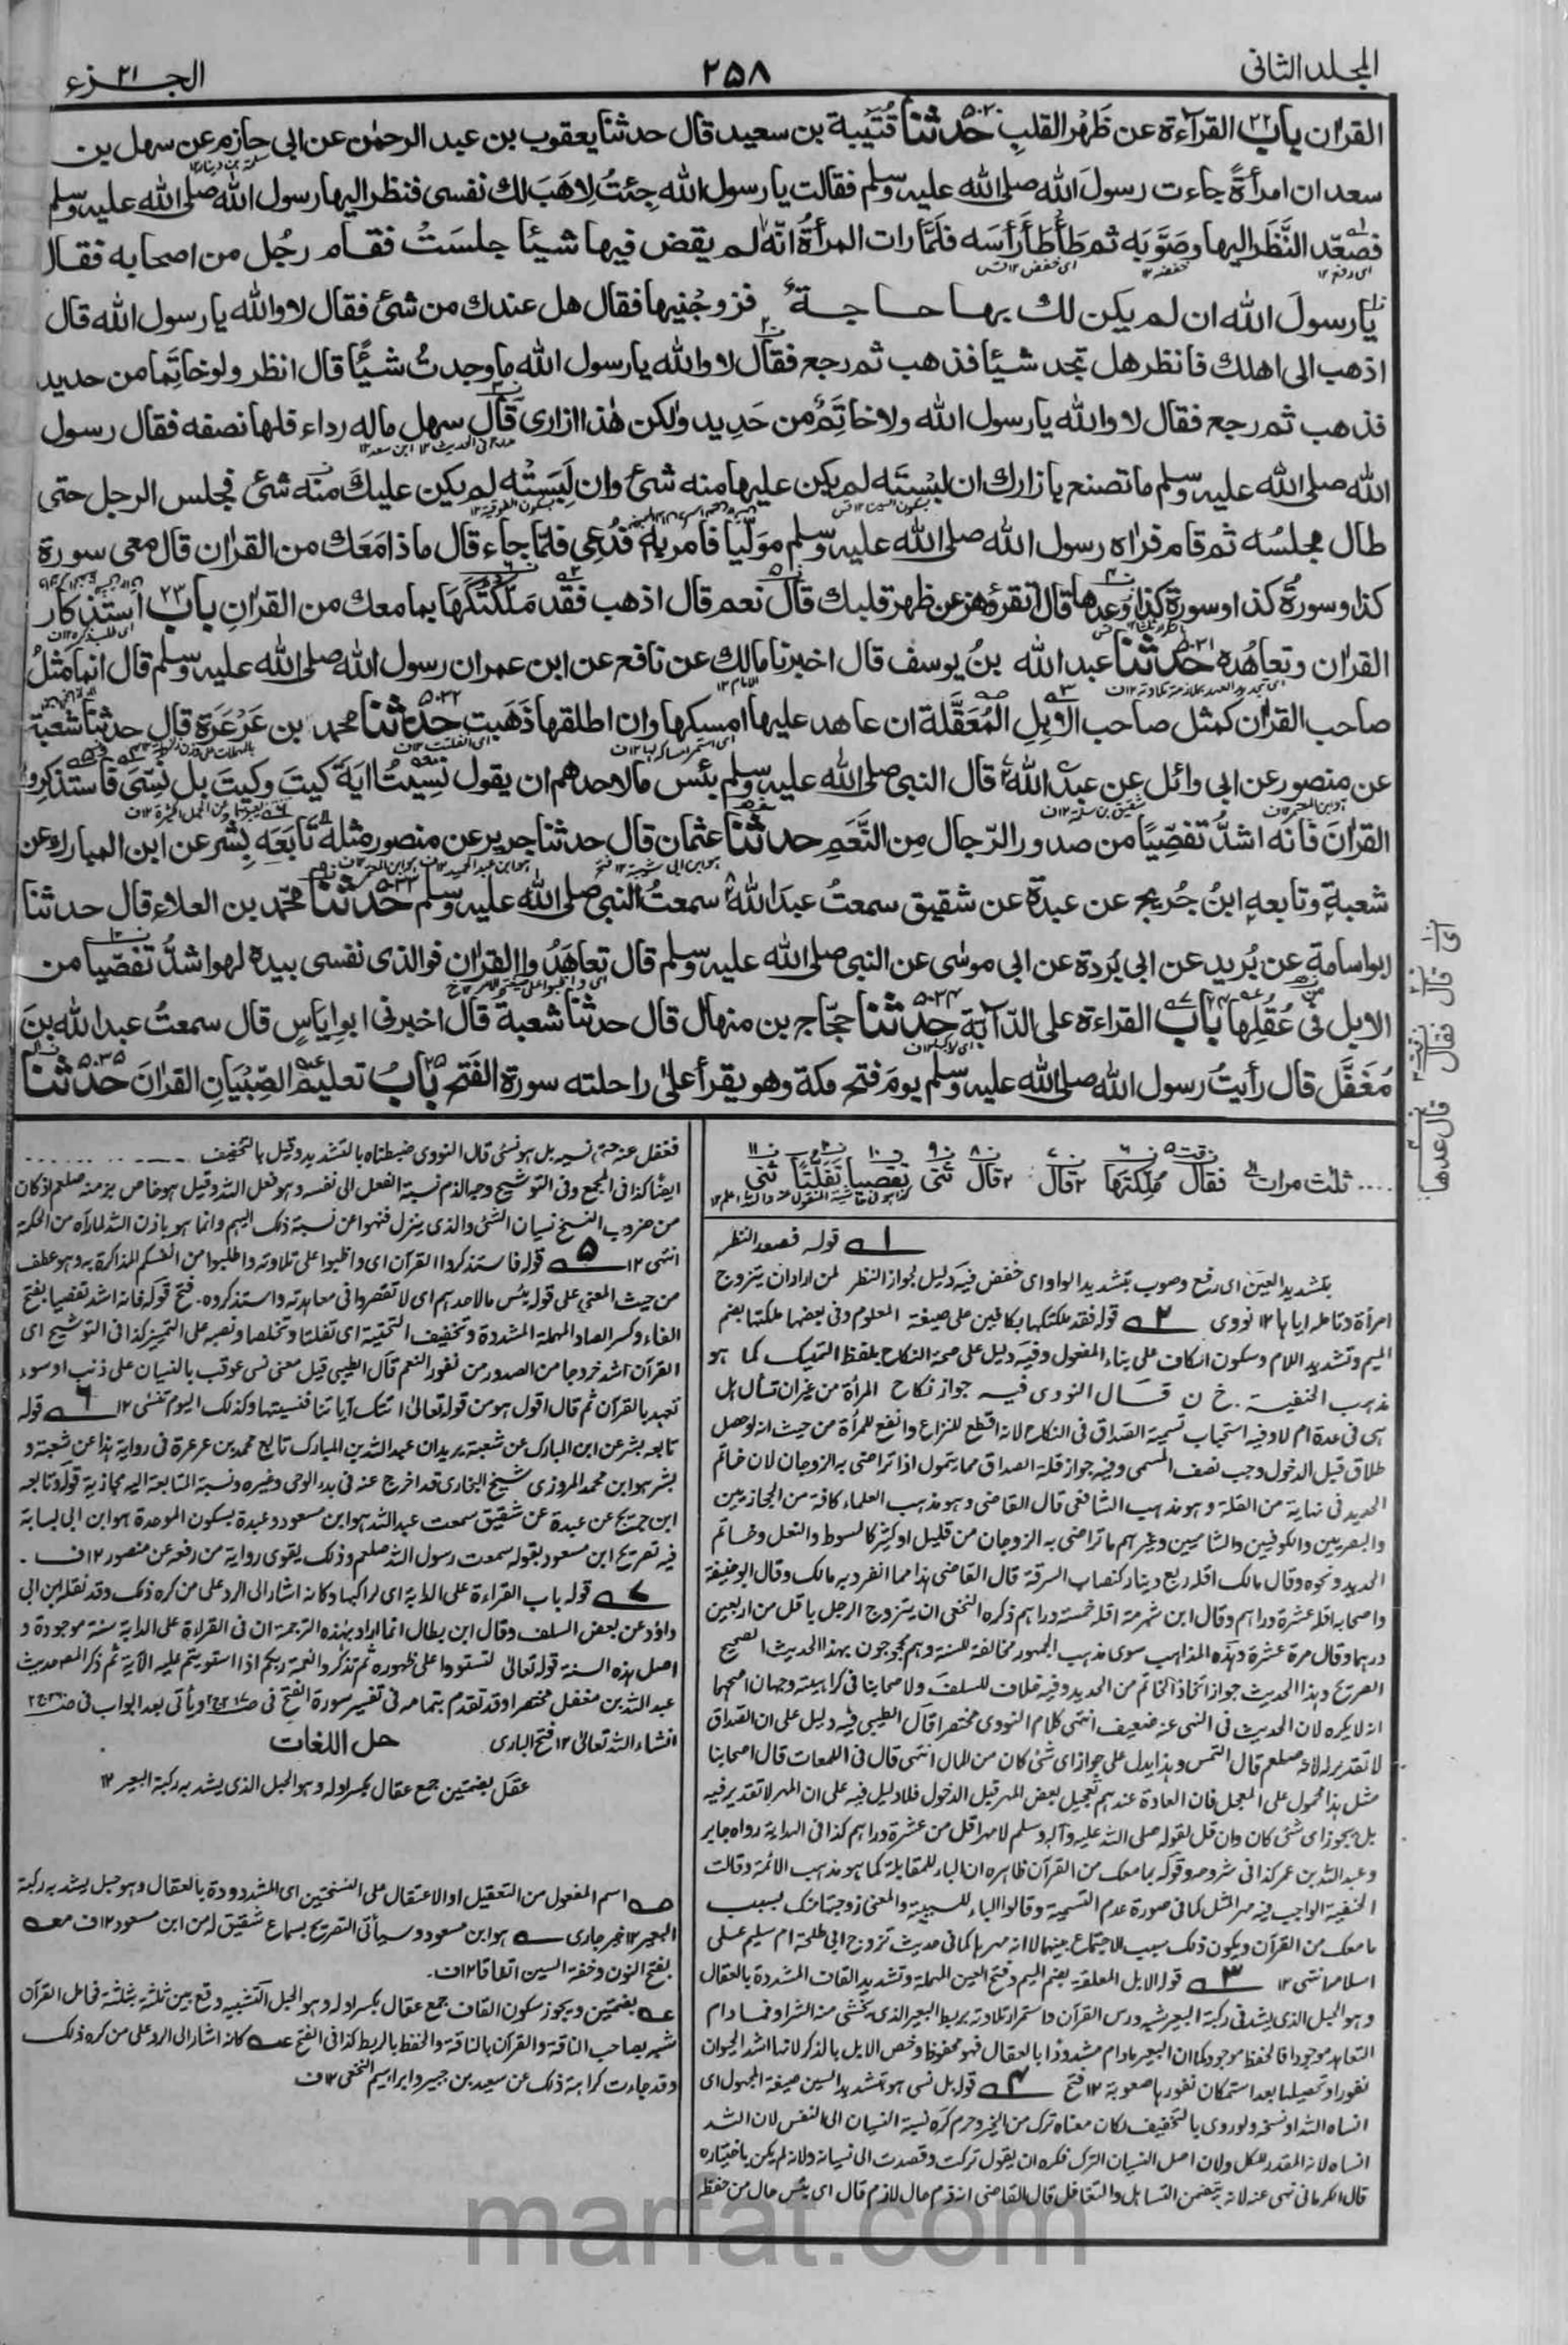 المجلد الثانی ٢٥٨ الجزء ٢١
القران باب ٢٢ القراءة عن ظَهْر القلبِ ٥٠٣٠ حدثنا قُتَيبة بن سعيد قال حدثنا يعقوب بن عبد الرحمٰن عن ابی حازم عن سهل بن
سعد ان امرأةً جاءت رسولَ الله صلى الله عليه وسلم فقالت يا رسول الله جِئتُ لِاَهَبَ لك نفسی فنظر اليها رسول الله صلى الله عليه وسلم
فصعّد النَّظَر اليها وصَوَّبه ثم طَأطَأ رَأسَه فلمّا رات المرأةُ انّه لم يقض فيها شيئًا جلسَتْ فقام رجُل من اصحابه فقال
يا رسولَ الله ان لم يكن لك بها حاجة فزوجْنِيها فقال هل عندك من شئ فقال لا والله يا رسول الله قال
اذهب الى اهلك فانظر هل تجد شيئا فذهب ثم رجع فقال لا والله يا رسول الله ما وجدتُ شيئًا قال انظر ولو خاتِمًا من حديد
فذهب ثم رجع فقال لا والله يا رسول الله ولا خاتِمٌ من حَدِيد ولكن هٰذا ازاری قال سهل ماله رداء فلها نصفه فقال رسول
الله صلى الله عليه وسلم ما تصنع بازارك ان لبِسْتَه لم يكن عليها منه شئ وان لَبِسَتْه لم يكن عليك منه شئ فجلس الرجل حتى
طال مجلسُه ثم قام فراه رسول الله صلى الله عليه وسلم مولّيا فامر به فدُعِی فلمّا جاء قال ماذا مَعَك من القران قال معی سورة
كذا وسورةُ كذا وسورة كذا وعدها قال اتقرؤهن عن ظهر قلبك قال نعم قال اذهب فقد مَلَّكْتُكَهَا بما معك من القرانِ باب ٢٣ استذكار
القران وتعاهُده ٥٠٣١ حدثنا عبد الله بنُ يوسف قال اخبرنا مالك عن نافع عن ابن عمر ان رسول الله صلى الله عليه وسلم قال انما مَثَلُ
صاحب القران كمثل صاحب الابِلِ المُعَقَّلة ان عاهد عليها امسكها وان اطلقها ذَهَبت ٥٠٣٢ حدثنا محمد بن عَرْعَرَة قال حدثنا شعبة
عن منصور عن ابی وائل عن عبد الله قال قال النبی صلى الله عليه وسلم بئس ما لاحدهم ان يقول نَسِيتُ اٰيَةَ كَيتَ وكيتَ بل نُسِّیَ فاستذكروا
القرانَ فانه اشدُّ تفصِّيًا من صدور الرّجال مِن النَّعَمِ حدثنا عثمان قال حدثنا جرير عن منصور مثله تابَعَه بِشر عن ابن المبارك عن
شعبةَ وتابعه ابنُ جُريج عن عبدة عن شقيق سمعتُ عبدَ الله سمعتُ النبی صلى الله عليه وسلم ٥٠٣٣ حدثنا محمّد بن العلاء قال حدثنا
ابو اسامة عن بُريد عن ابی بُردة عن ابی موسٰى عن النبی صلى الله عليه وسلم قال تعاهَدُوا القرانَ فوالذی نفسی بيده لهو اشدُّ تفصّيا من
الابل فی عُقُلِها باب ٢٤ القراءة على الدّابّة ٥٠٣٤ حدثنا حجّاج بن منهال قال حدثنا شعبة قال اخبرنی ابو اِيَاسٍ قال سمعتُ عبد الله بنَ
مُغَفَّل قال رأيتُ رسول الله صلى الله عليه وسلم يومَ فتح مكة وهو يقرأ على راحلته سورةَ الفَتح باب ٢٥ تعليم الصِّبْيَانِ القرانَ ٥٠٣٥ حدثنا
ثلث مرات فقال مُلِّكتَها قال قال ثنی تفصيا تفلتا ثنی
١ قوله فصعد النظر
بتشديد العين ای رفع وصوب بتشديد الواو ای خفض فيه دليل لجواز النظر لمن اراد ان يتزوج
امرأة وتامله اياها ١٢ نووی ٢ قوله فقد ملكتكها بكافين على صيغة المعلوم وفی بعضها ملكتها بضم
الميم وتشديد اللام وسكون الكاف على بناء المفعول وفيه دليل على صحة النكاح بلفظ التمليك كما هو
مذهب الحنفية . خ ن قال النووی فيه جواز نكاح المرأة من غير ان تسأل هل
هی فی عدة ام لا وفيه استحباب تسمية الصداق فی النكاح لانه اقطع للنزاع وانفع للمرأة من حيث انه لو حصل
طلاق قبل الدخول وجب نصف المسمى وفيه جواز قلة الصداق مما يتمول اذا تراضی به الزوجان لان خاتم
الحديد فی نهاية من القلة وهو مذهب الشافعی قال القاضی وهو مذهب العلماء كافة من الحجازيين
والبصريين والكوفيين والشاميين وغيرهم ما تراضی به الزوجان من قليل او كثير كالسوط والنعل وخاتم
الحديد ونحوه وقال مالك اقله ربع دينار كنصاب السرقة قال القاضی هذا مما انفرد به مالك وقال ابو حنيفة
واصحابه اقله عشرة دراهم وقال ابن شبرمة اقله خمسة دراهم وكره النخعی ان يتزوج الرجل باقل من اربعين
درهما وقال مرة عشرة وهذه المذاهب سوى مذهب الجمهور مخالفة للسنة وهم محجوجون بهذا الحديث الصحيح
الصريح وبهذا الحديث جواز اتخاذ الخاتم من الحديد وفيه خلاف للسلف ولاصحابنا فی كراهيته وجهان اصحهما
انه لا يكره لان الحديث فی النهی عنه ضعيف انتهى كلام النووی مختصرا قال الطيبی فيه دليل على ان الصداق
مثل هذا محمول على المعجل فان العادة عندهم تعجيل بعض المهر قبل الدخول فلا دليل فيه على ان المهر لا تقدير فيه
بل يجوز ای شئ كان وان قل لقوله صلى الله عليه وآله وسلم لا مهر اقل من عشرة دراهم كذا فی الهداية رواه جابر
وعبد الله بن عمر كذا فی شروحه وقوله بما معك من القرآن ظاهره ان الباء للمقابلة كما هو مذهب الائمة وقالت
الحنفية الواجب فيه مهر المثل كما فی صورة عدم التسمية وقالوا الباء للسببية والمعنى زوجتك بسبب
ما معك من القرآن ويكون ذلك سبب الاجتماع بينهما لا انه مهرها كما فی حديث تزوج ابی طلحة ام سليم على
اسلامه انتهى ١٢ ٣ قوله الابل المعقلة بضم الميم وفتح العين المهملة وتشديد القاف المشددة بالعقال
وهو الحبل الذی يشد فی ركبة البعير شبه درس القرآن واستمرار تلاوته بربط البعير الذی يخشى منه الشراد فما دام
التعاهد موجودا فالحفظ موجود كما ان البعير ما دام مشدودا بالعقال فهو محفوظ وخص الابل بالذكر لانها اشد الحيوان
نفورا وتحصيلها بعد استمكان نفورها صعوبة ١٢ فتح ٤ قوله بل نسی هو بتشديد السين صيغة المجهول ای
انساه الله او نسخه ولو روی بالتخفيف لكان معناه ترك من الخير وحرم كره نسبة النسيان الى النفس لان الله
انساه لانه المقدر للكل ولان اصل النسيان الترك فكره ان يقول تركت وقصدت الى نسيانه ولانه لم يكن باختياره
قال الكرمانی نهی عنه لانه يتضمن التساهل والتغافل قال القاضی انه ذم حال لا ذم قال ای بئس حال من حفظه
فغفل عنه حتى نسيه بل هو نسی قال النووی ضبطناه بالتشديد وقيل بالتخفيف
ايضا كذا فی المجمع وفی التوشيح وجه الذم نسبة الفعل الى نفسه وهو فعل الله وقيل هو خاص بزمنه صلعم اذ كان
من ضروب النسخ نسيان الشئ والذی ينزل فنهوا عن نسبة ذلك اليهم وانما هو باذن الله لما رآه من الحكمة
انتهى ١٢ ٥ قوله فاستذكروا القرآن ای واظبوا على تلاوته واطلبوا من انفسكم المذاكرة به وهو عطف
من حيث المعنى على قوله بئس ما لاحدهم ای لا تقصروا فی معاهدته واستذكروه . فتح قوله فانه اشد تفصيا بفتح
الفاء وكسر الصاد المهملة المشددة وتخفيف التحتية ای تفلتا وتخلصا ونصبه على التمييز كذا فی التوشيح ای
القرآن اشد خروجا من الصدور من نفور النعم قال الطيبی قيل معنى نسی عوقب بالنسيان على ذنب او سوء
تعهد بالقرآن ثم قال اقول هو من قوله تعالى اتتك آياتنا فنسيتها وكذلك اليوم تنسى ١٢ ٦ قوله
تابعه بشر عن ابن المبارك عن شعبة يريد ان عبد الله بن المبارك تابع محمد بن عرعرة فی رواية هذا عن شعبة و
بشر هو ابن محمد المروزی شيخ البخاری قد اخرج عنه فی بدء الوحی وغيره ونسبة المتابعة اليه مجازية قوله وتابعه
ابن جريج عن عبدة عن شقيق سمعت عبد الله هو ابن مسعود وعبدة بسكون الموحدة هو ابن ابی لبابة
فيه تصريح ابن مسعود بقوله سمعت رسول الله صلعم وذلك يقوی رواية من رفعه عن منصور ١٢ ف .
٧ قوله باب القراءة على الدابة ای لراكبها وكانه اشار الى الرد على من كره ذلك وقد نقله ابن ابی
داود عن بعض السلف وقال ابن بطال انما اراد بهذه الترجمة ان فی القراءة على الدابة سنة موجودة و
اصل هذه السنة قوله تعالى لتستووا على ظهوره ثم تذكروا نعمة ربكم اذا استويتم عليه الآية ثم ذكر المصنف حديث
عبد الله بن مغفل مختصرا وقد تقدم بتمامه فی تفسير سورة الفتح ويأتی بعد ابواب
انشاء الله تعالى ١٢ فتح الباری
حل اللغات
عقل بضمتين جمع عقال بكسر اوله وهو الحبل الذی يشد به ركبة البعير ١٢
اسم المفعول من التعقيل او الاعتقال على النسختين ای المشدودة بالعقال وهو حبل يشد به ركبة
البعير ١٢ خير جاری هو ابن مسعود وسيأتی التصريح بسماع شقيق له من ابن مسعود ١٢ ف
بفتح النون وخفة السين اتفاقا ١٢ ف .
بضمتين ويجوز سكون القاف جمع عقال بكسر اوله وهو الحبل التشبيه وقع بين ثلثة بثلثة فحامل القرآن
شبه بصاحب الناقة والقرآن بالناقة والحفظ بالربط كذا فی الفتح كانه اشار الى الرد على من كره ذلك
وقد جاءت كراهة ذلك عن سعيد بن جبير وابراهيم النخعی ١٢ ف
marfat.com